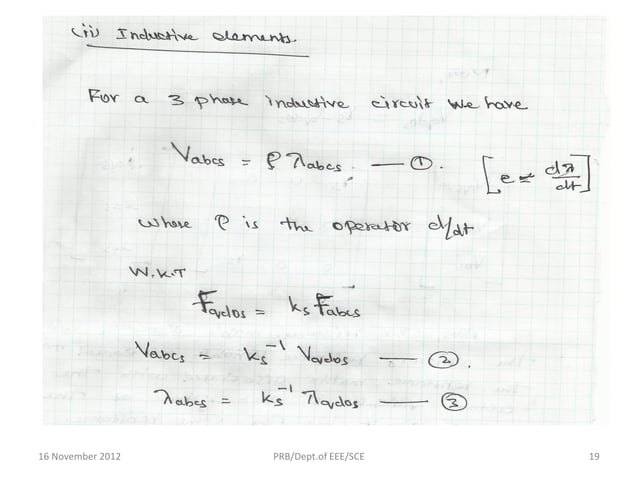 (ii) Inductive elements.
For a 3 phase inductive circuit we have
Vabcs = ρ λabcs. — ①. [e = dλ/dt]
where ρ is the operator d/dt
W.K.T
Fqdos = ks Fabcs
Vabcs = ks⁻¹ Vqdos — ②.
λabcs = ks⁻¹ λqdos — ③
16 November 2012 PRB/Dept.of EEE/SCE 19